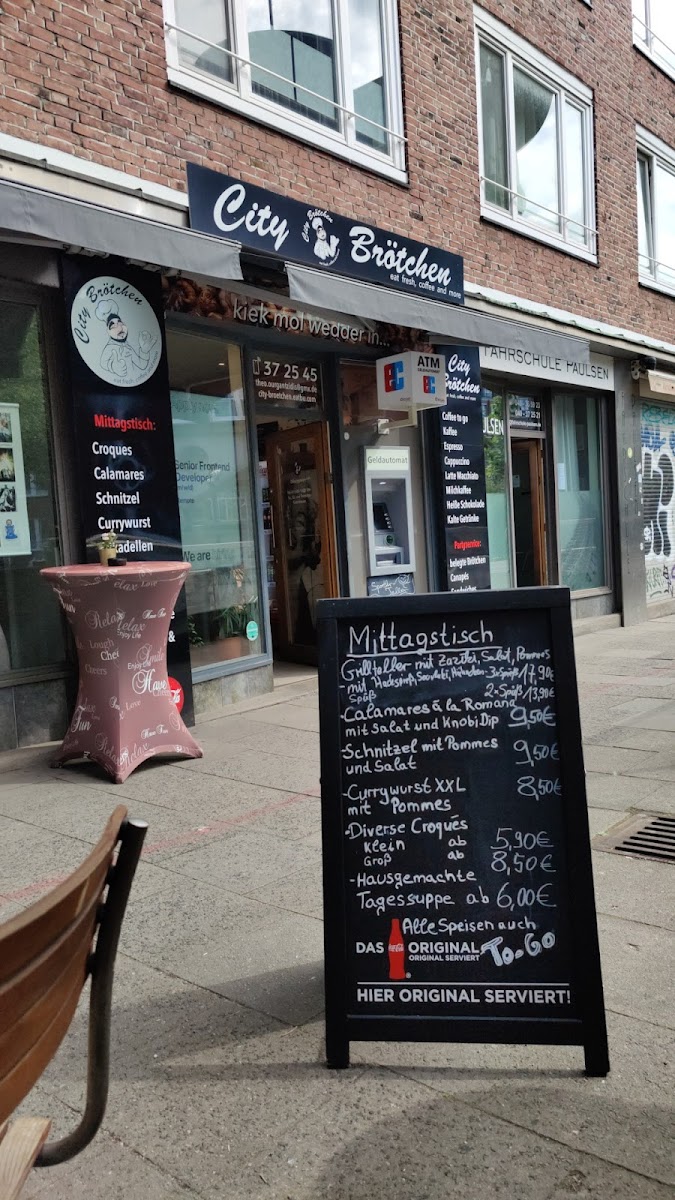 City Brötchen
City Brötchen
eat fresh, coffee and more
kiek mol wedder in...
City Brötchen
eat fresh, coffee and more
Mittagstisch:
Croques
Calamares
Schnitzel
Currywurst
37 25 45
city-broetchen.eatbu.com
Senior Frontend
Developer
We are
ATM
Geldautomat
City
Brötchen
eat fresh, coffee and more
Coffee to go
Kaffee
Espresso
Cappuccino
Latte Macchiato
Milchkaffee
Heiße Schokolade
Kalte Getränke
Partyservice:
belegte Brötchen
Canapés
FAHRSCHULE PAULSEN
Relax
Enjoy Life
Laugh
Cheers
Smile
Have
Fun
Mittagstisch
Grillteller mit Zaziki, Salat, Pommes
- mit 3x Spieß 17,90€
Spieß 2x Spieß 13,90€
- Calamares á la Romana
mit Salat und Knobi Dip 9,50€
- Schnitzel mit Pommes
und Salat 9,50€
- Currywurst XXL
mit Pommes 8,50€
- Diverse Croqués
Klein ab 5,90€
Groß ab 8,50€
- Hausgemachte
Tagessuppe ab 6,00€
Alle Speisen auch
To-Go
DAS Coca-Cola ORIGINAL
ORIGINAL SERVIERT
HIER ORIGINAL SERVIERT!